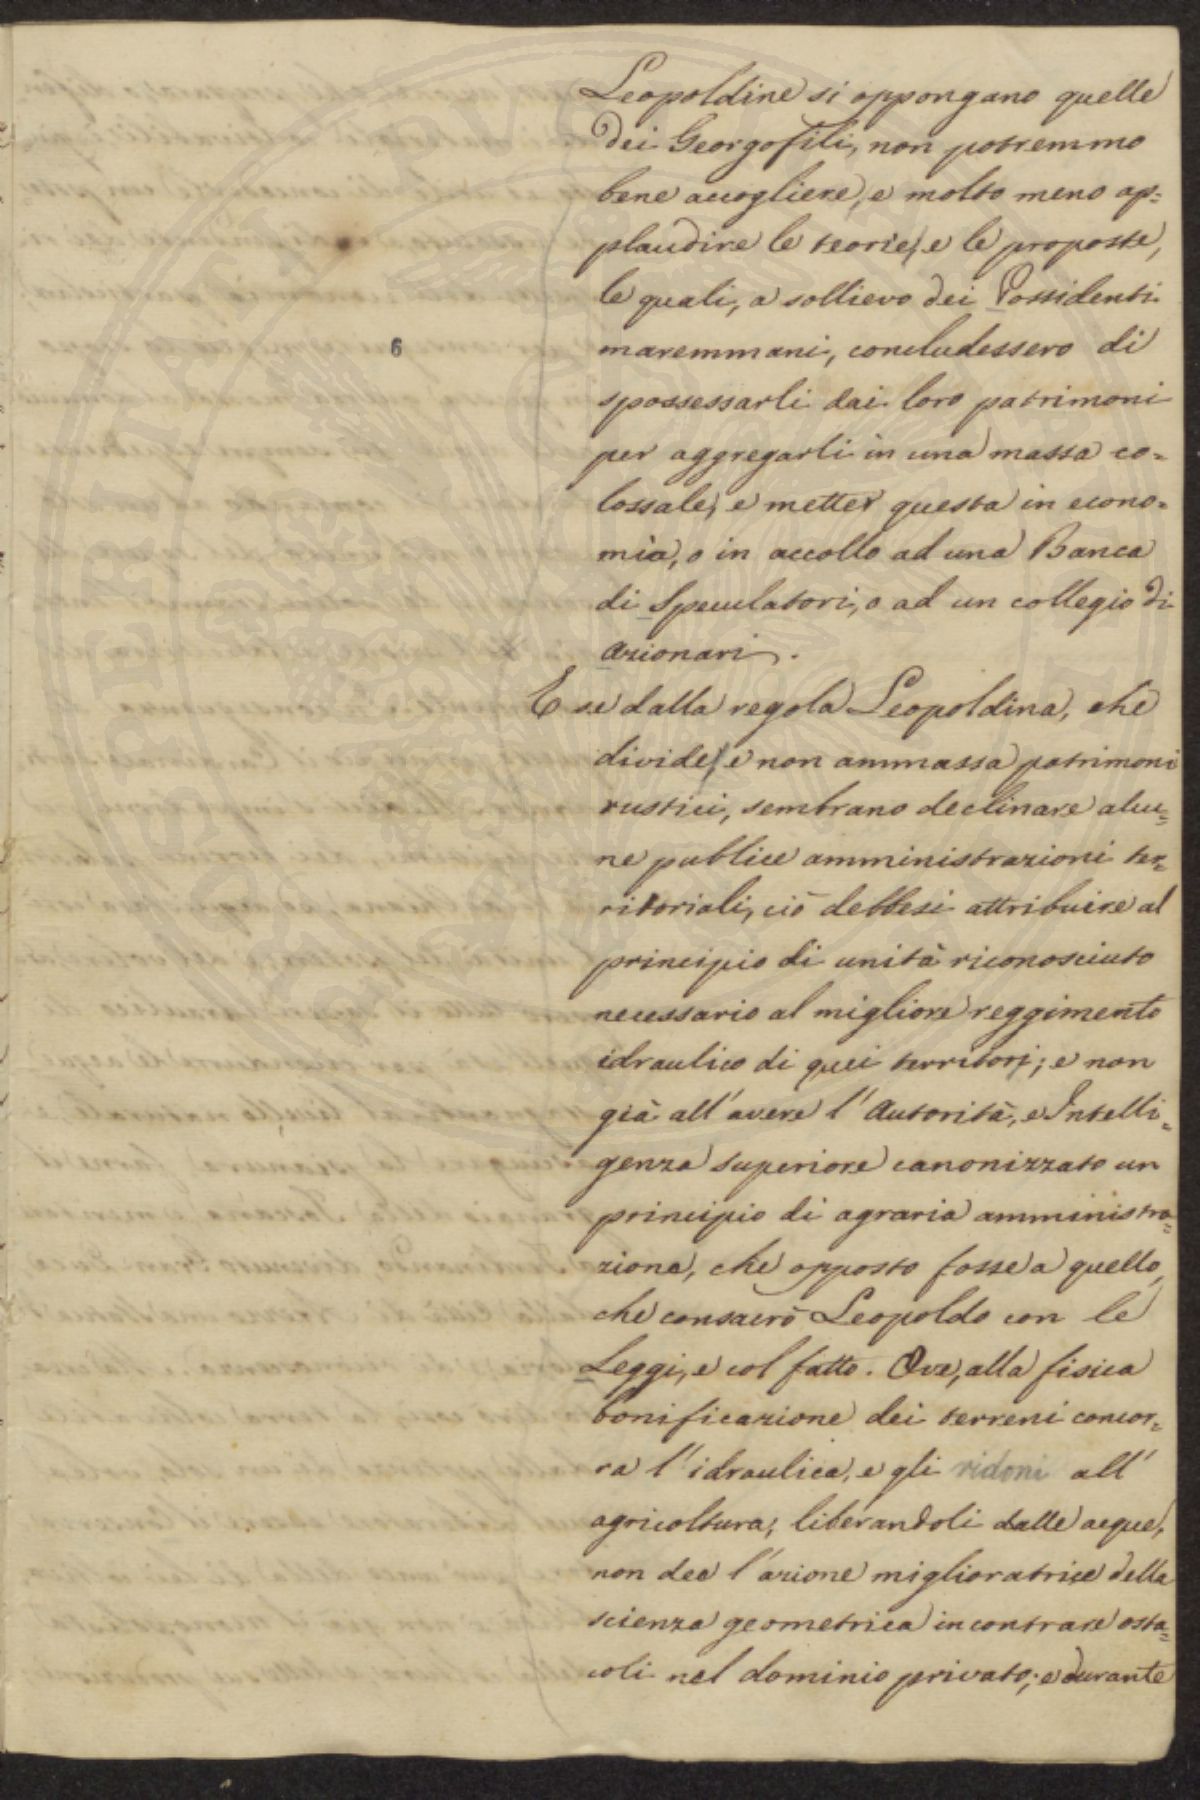 Leopoldine si oppongano quelle
dei Georgofili, non potremmo
bene accogliere, e molto meno ap=
plaudire le teorie, e le proposte,
le quali, a sollievo dei Possidenti
6
maremmani, concludessero di
spossessarli dai loro patrimoni
per aggregarli in una massa co=
lossale, e metter questa in econo=
mia, o in accollo ad una Banca
di Speculatori, o ad un collegio di
azionari.
E se dalla regola Leopoldina, che
divide, e non ammassa patrimoni
rustici, sembrano declinare alcu=
ne publice amministrazioni ter=
ritoriali, ciò debbesi attribuire al
principio di unità riconosciuto
necessario al migliore reggimento
idraulico di quei territorj; e non
già all'avere l'Autorità, e Intelli=
genza superiore canonizzato un
principio di agraria amministra=
zione, che opposto fosse a quello,
che consacrò Leopoldo con le
Leggi, e col fatto. Ove, alla fisica
bonificazione dei terreni concor=
ra l'idraulica, e gli ridoni all'
agricoltura, liberandoli dalle acque,
non dee l'azione miglioratrice della
scienza geometrica incontrare osta=
coli nel dominio privato; e durante